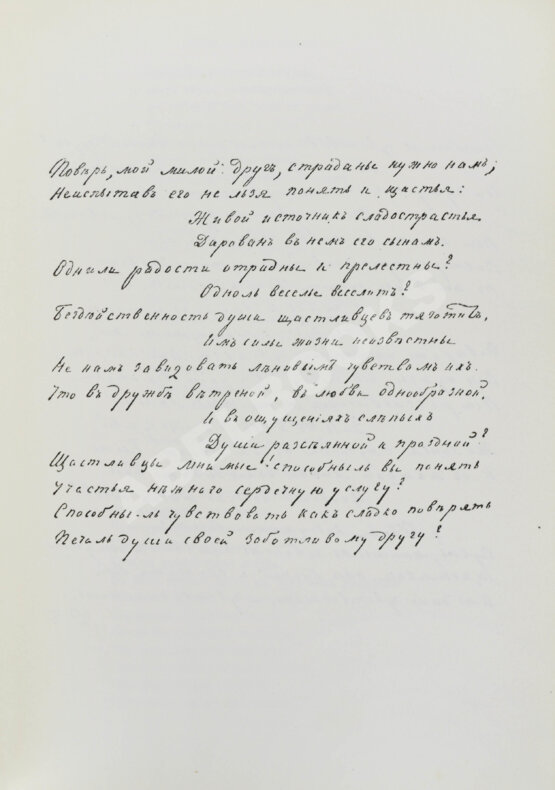 Повѣрь, мой милой другъ, страданье нужно намъ;
Неиспытавъ его не льзя понять и щастья:
Живой источникъ сладострастья
Дарованъ въ немъ его сынамъ.
Однили радости отрадны и прелестны?
Одноль веселье веселитъ?
Бездѣйственность души щастливцевъ тяготитъ,
Имъ силы жизни неизвѣстны.
Не намъ завидовать лѣнивымъ чувствамъ ихъ.
Что въ дружбѣ вѣтреной, въ любви однообразной,
И въ ощущеніяхъ слѣпыхъ
Души разсѣянной и праздной?
Щастливцы мнимые! способныль вы понять
Участья нѣжнаго сердечную услугу?
Способны-ль чувствовать какъ сладко повѣрять
Печаль души своей заботливому другу?